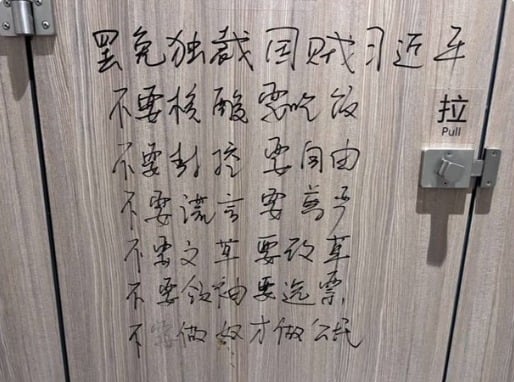 罢免独裁国贼习近平
不要核酸要吃饭
拉
Pull
不要封控 要自由
不要谎言 要尊严
不要文革要改革
不要领袖要选票
不要做奴才做公民